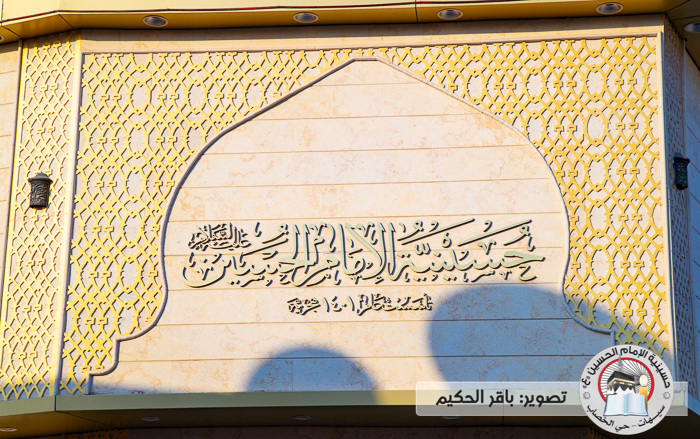 حسينية الإمام الحسين عليه السلام
تأسست عام ١٤٠١ هجرية
تصوير: باقر الحكيم
حسينية الإمام الحسين "ع"
سيهات .. حي الخصاب